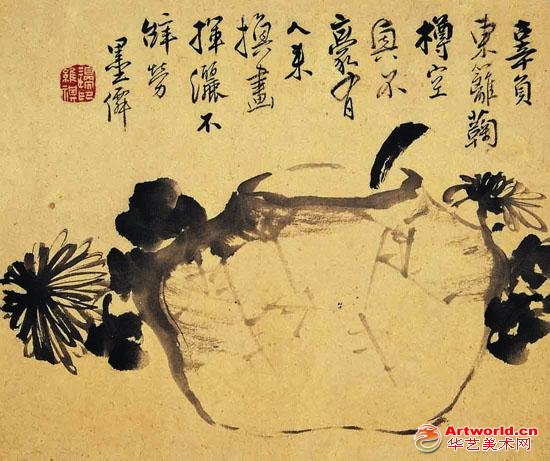 辜負
東籬鞠
樽空
興不
豪有
人来
換畫
揮灑不
辭勞
墨僊
Artworld.cn
华艺美术网